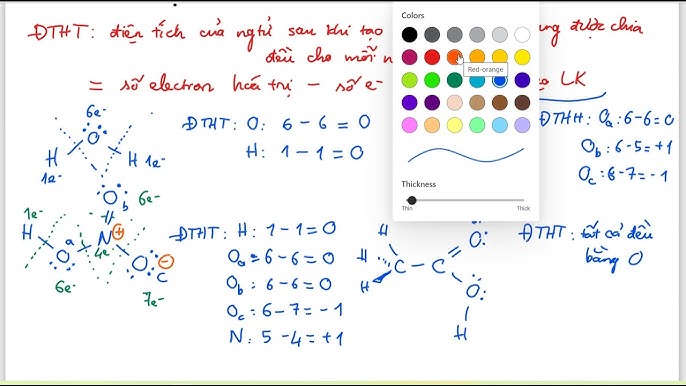 ĐTHT: điện tích của ngtử sau khi tạo
ung được chia
đều cho mỗi n
= số electron hoá trị – số e⁻
LK
Colors
Red-orange
Thickness
Thin
Thick
6e⁻
O
H
H
1e⁻
1e⁻
ĐTHT: O: 6 – 6 = 0
H: 1 – 1 = 0
ĐTHH: Oa: 6-6=0
Ob: 6-5=+1
Oc: 6-7=-1
O b
6e⁻
1e⁻
H
a
O
N
+
4e⁻
O
–
c
6e⁻
7e⁻
ĐTHT: H: 1-1=0
Oa = 6-6=0
Ob: 6-6=0
Oc: 6-7= -1
N: 5-4=+1
H
O
H
C – C
H
O
H
ĐTHT: tất cả đều
bằng 0